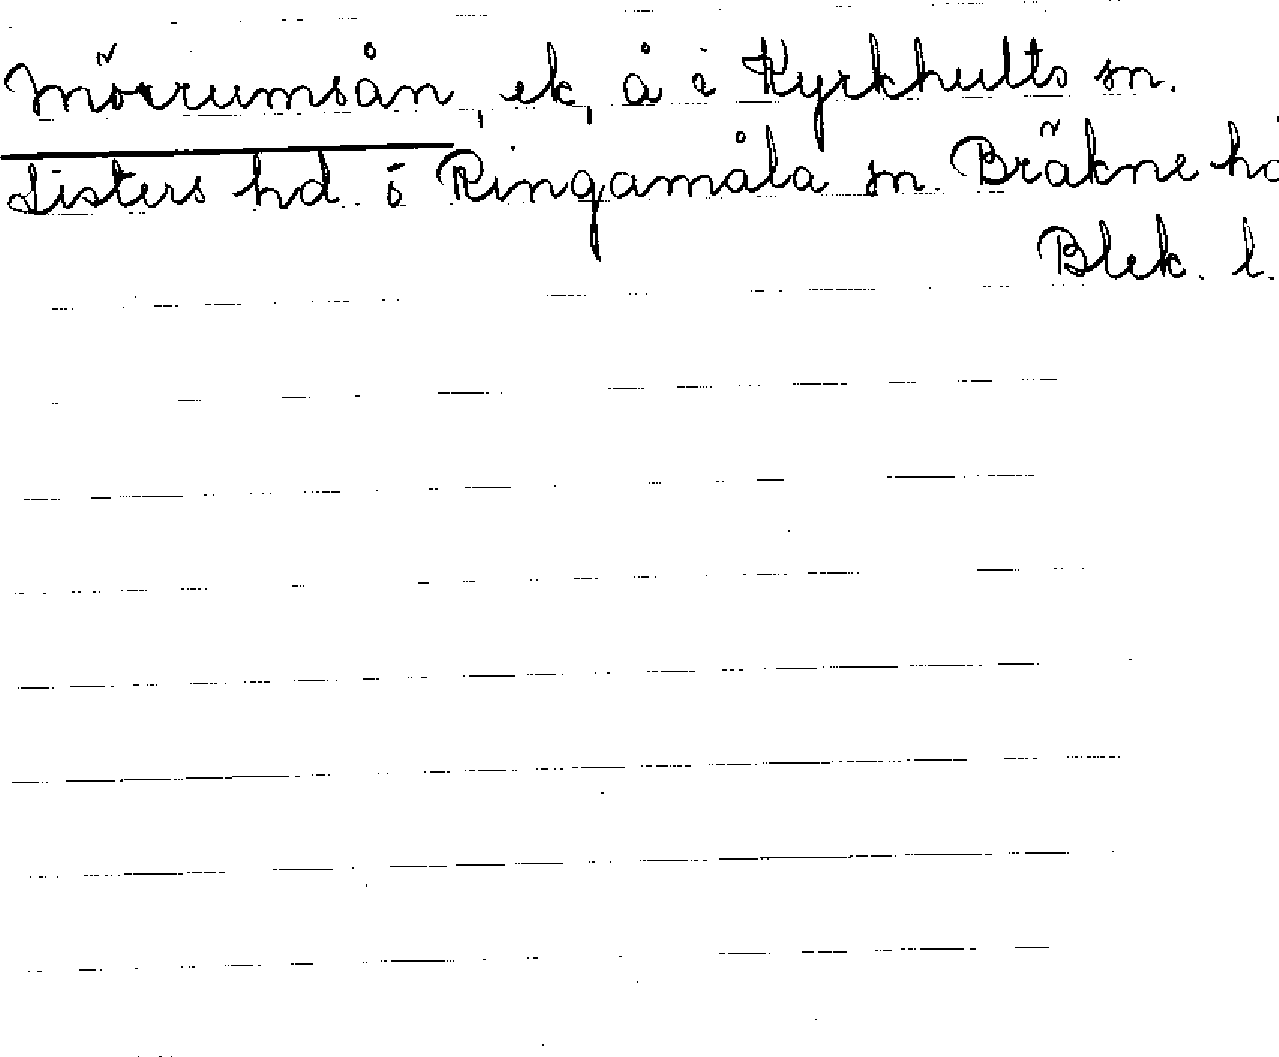 Mörrumsån, ek, å i Kyrkhults sn.
Listers hd. ö Ringamåla sn. Bräkne hd
Blek. l.